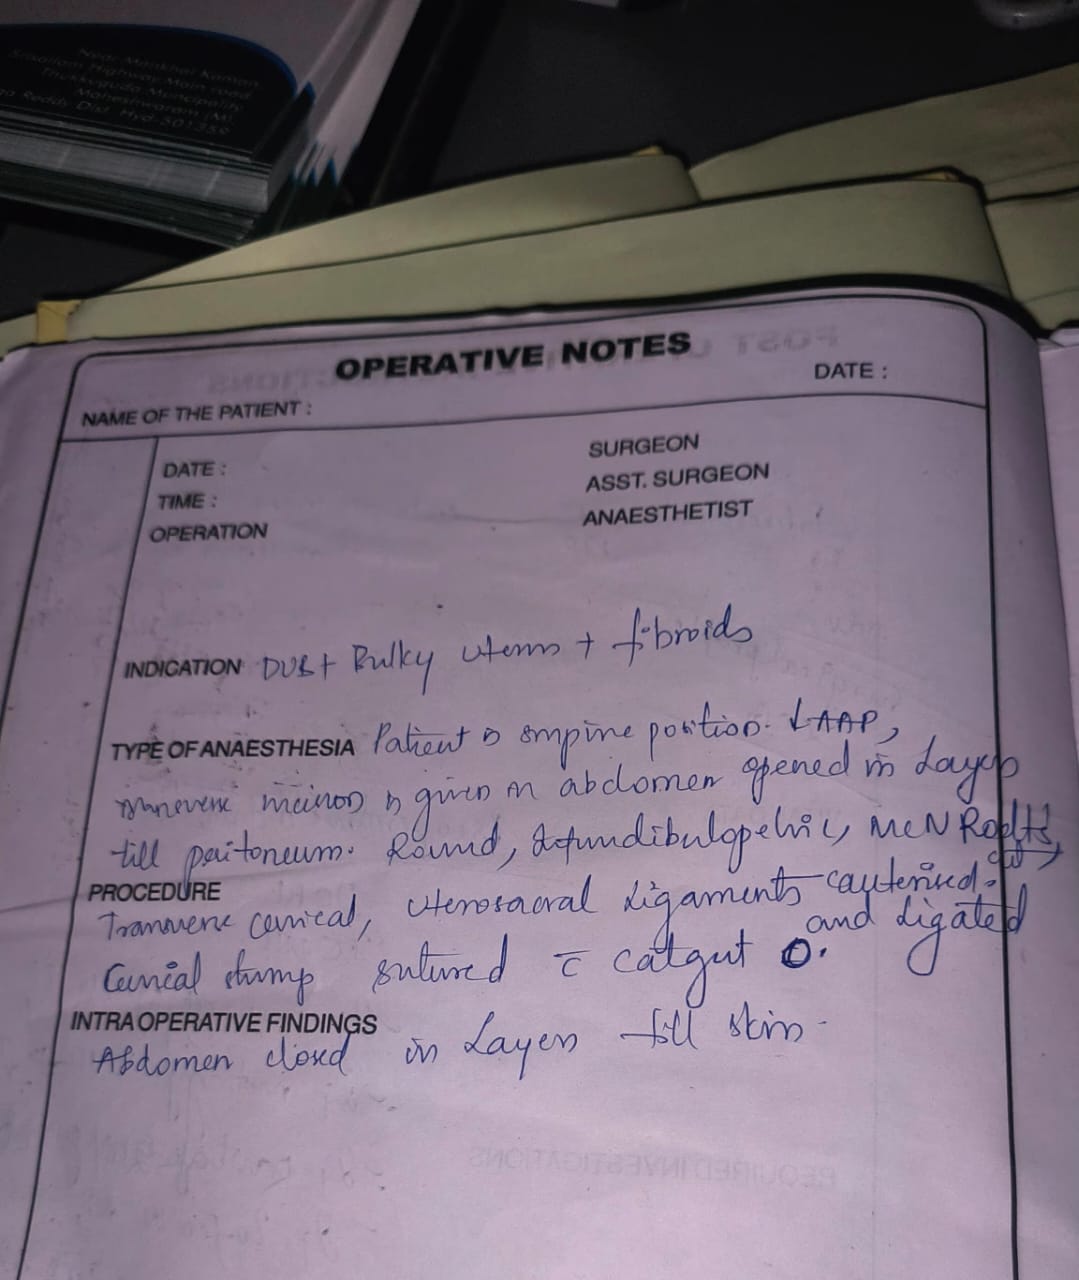 Near Mankhal Kaman
Srisailam Highway Main road
Thukkuguda Municipality
Maheshwaram (M),
ga Reddy Dist. Hyd-501359
OPERATIVE NOTES
NAME OF THE PATIENT :
DATE :
DATE :
SURGEON
TIME :
ASST. SURGEON
OPERATION
ANAESTHETIST
INDICATION DUB + Bulky uterus + fibroids
TYPE OF ANAESTHESIA Patient is supine position. LAAP,
given abdomen opened in Layers
till peritoneum. Round, Infundibulopelvic,
PROCEDURE
Transverse cervical, uterosacral Ligaments cauterised.
and Ligated
Cervical stump sutured c̄ catgut 0.
INTRA OPERATIVE FINDINGS
Abdomen closed in Layers till skin.
REQUIRED INVESTIGATIONS